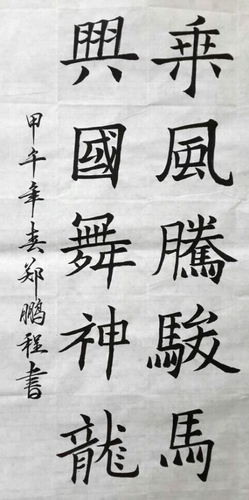 乘風騰駿馬
興國舞神龍
甲午年春郑鹏程書